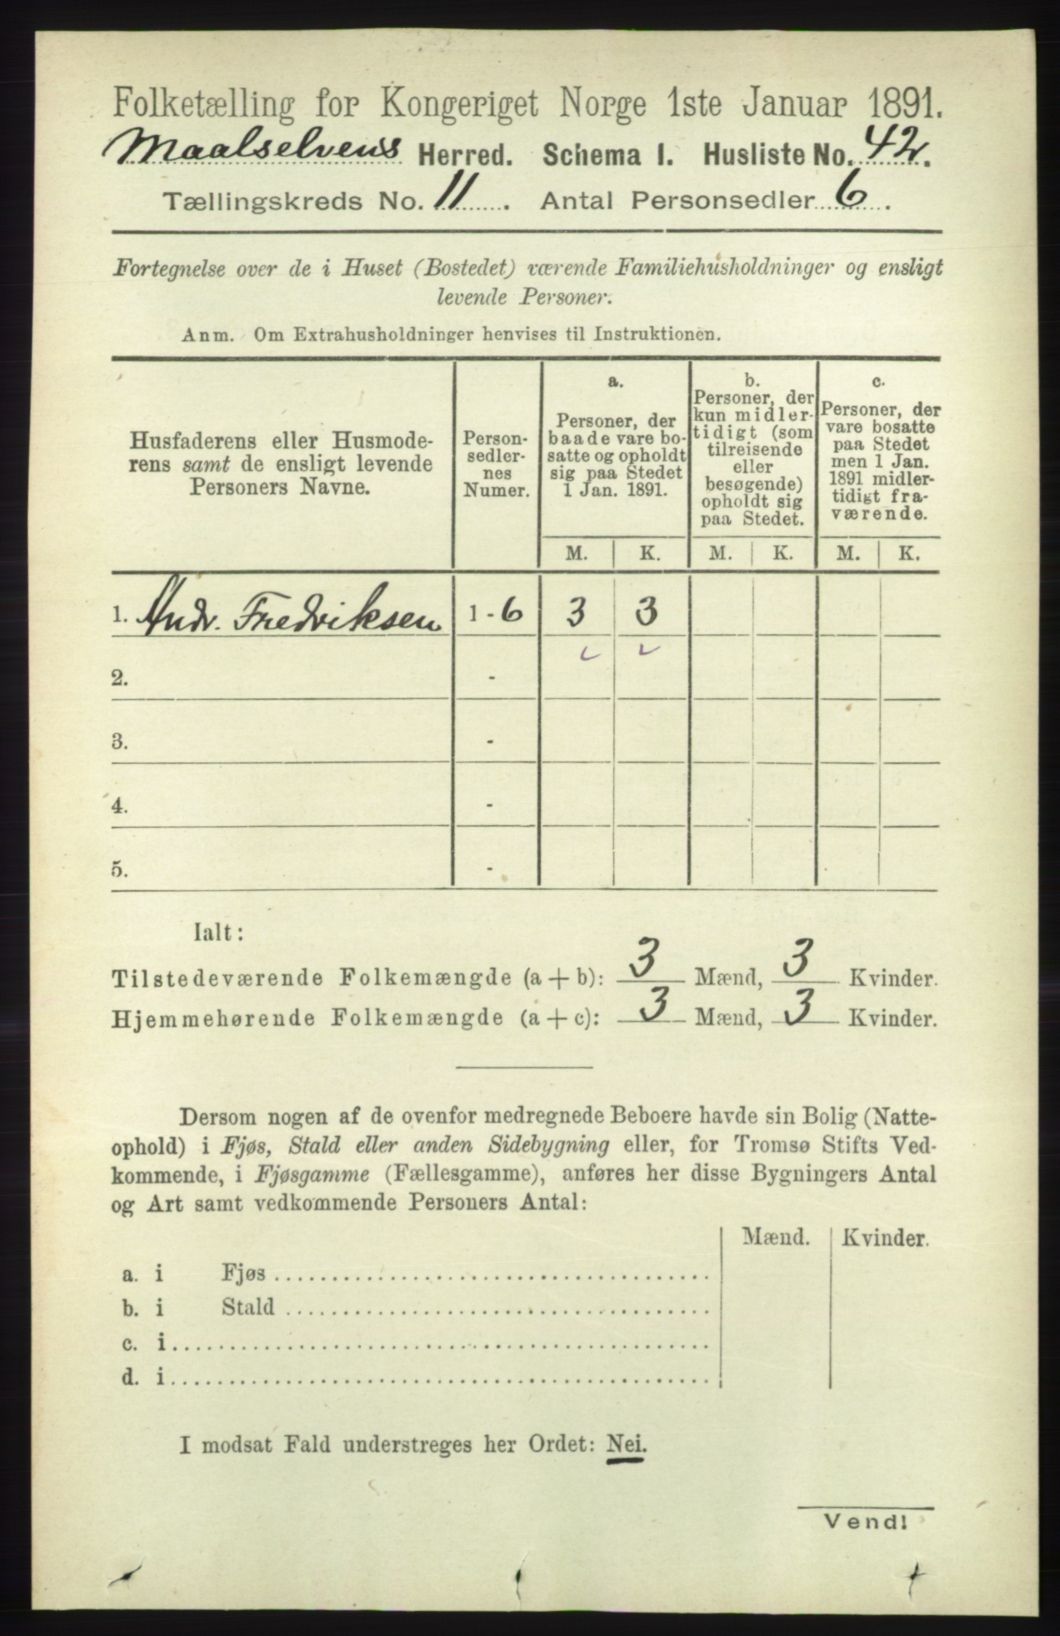 Folketælling for Kongeriget Norge 1ste Januar 1891.
Maalselvens Herred. Schema I. Husliste No. 42.
Tællingskreds No. 11. Antal Personsedler 6.
Fortegnelse over de i Huset (Bostedet) værende Familiehusholdninger og ensligt
levende Personer.
Anm. Om Extrahusholdninger henvises til Instruktionen.
Husfaderens eller Husmode-
rens samt de ensligt levende
Personers Navne.
Person-
sedler-
nes
Numer.
a.
Personer, der
baade vare bo-
satte og opholdt
sig paa Stedet
1 Jan. 1891.
b.
Personer, der
kun midler-
tidigt (som
tilreisende
eller
besøgende)
opholdt sig
paa Stedet.
c.
Personer, der
vare bosatte
paa Stedet
men 1 Jan.
1891 midler-
tidigt fra-
værende.
M. K. M. K. M. K.
1. Andr. Fredriksen 1 - 6 3 3
2. -
3. -
4. -
5. -
Ialt:
Tilstedeværende Folkemængde (a + b): 3 Mænd, 3 Kvinder.
Hjemmehørende Folkemængde (a + c): 3 Mænd, 3 Kvinder.
Dersom nogen af de ovenfor medregnede Beboere havde sin Bolig (Natte-
ophold) i Fjøs, Stald eller anden Sidebygning eller, for Tromsø Stifts Ved-
kommende, i Fjøsgamme (Fællesgamme), anføres her disse Bygningers Antal
og Art samt vedkommende Personers Antal:
Mænd. Kvinder.
a. i Fjøs
b. i Stald
c. i
d. i
I modsat Fald understreges her Ordet: Nei.
Vend!